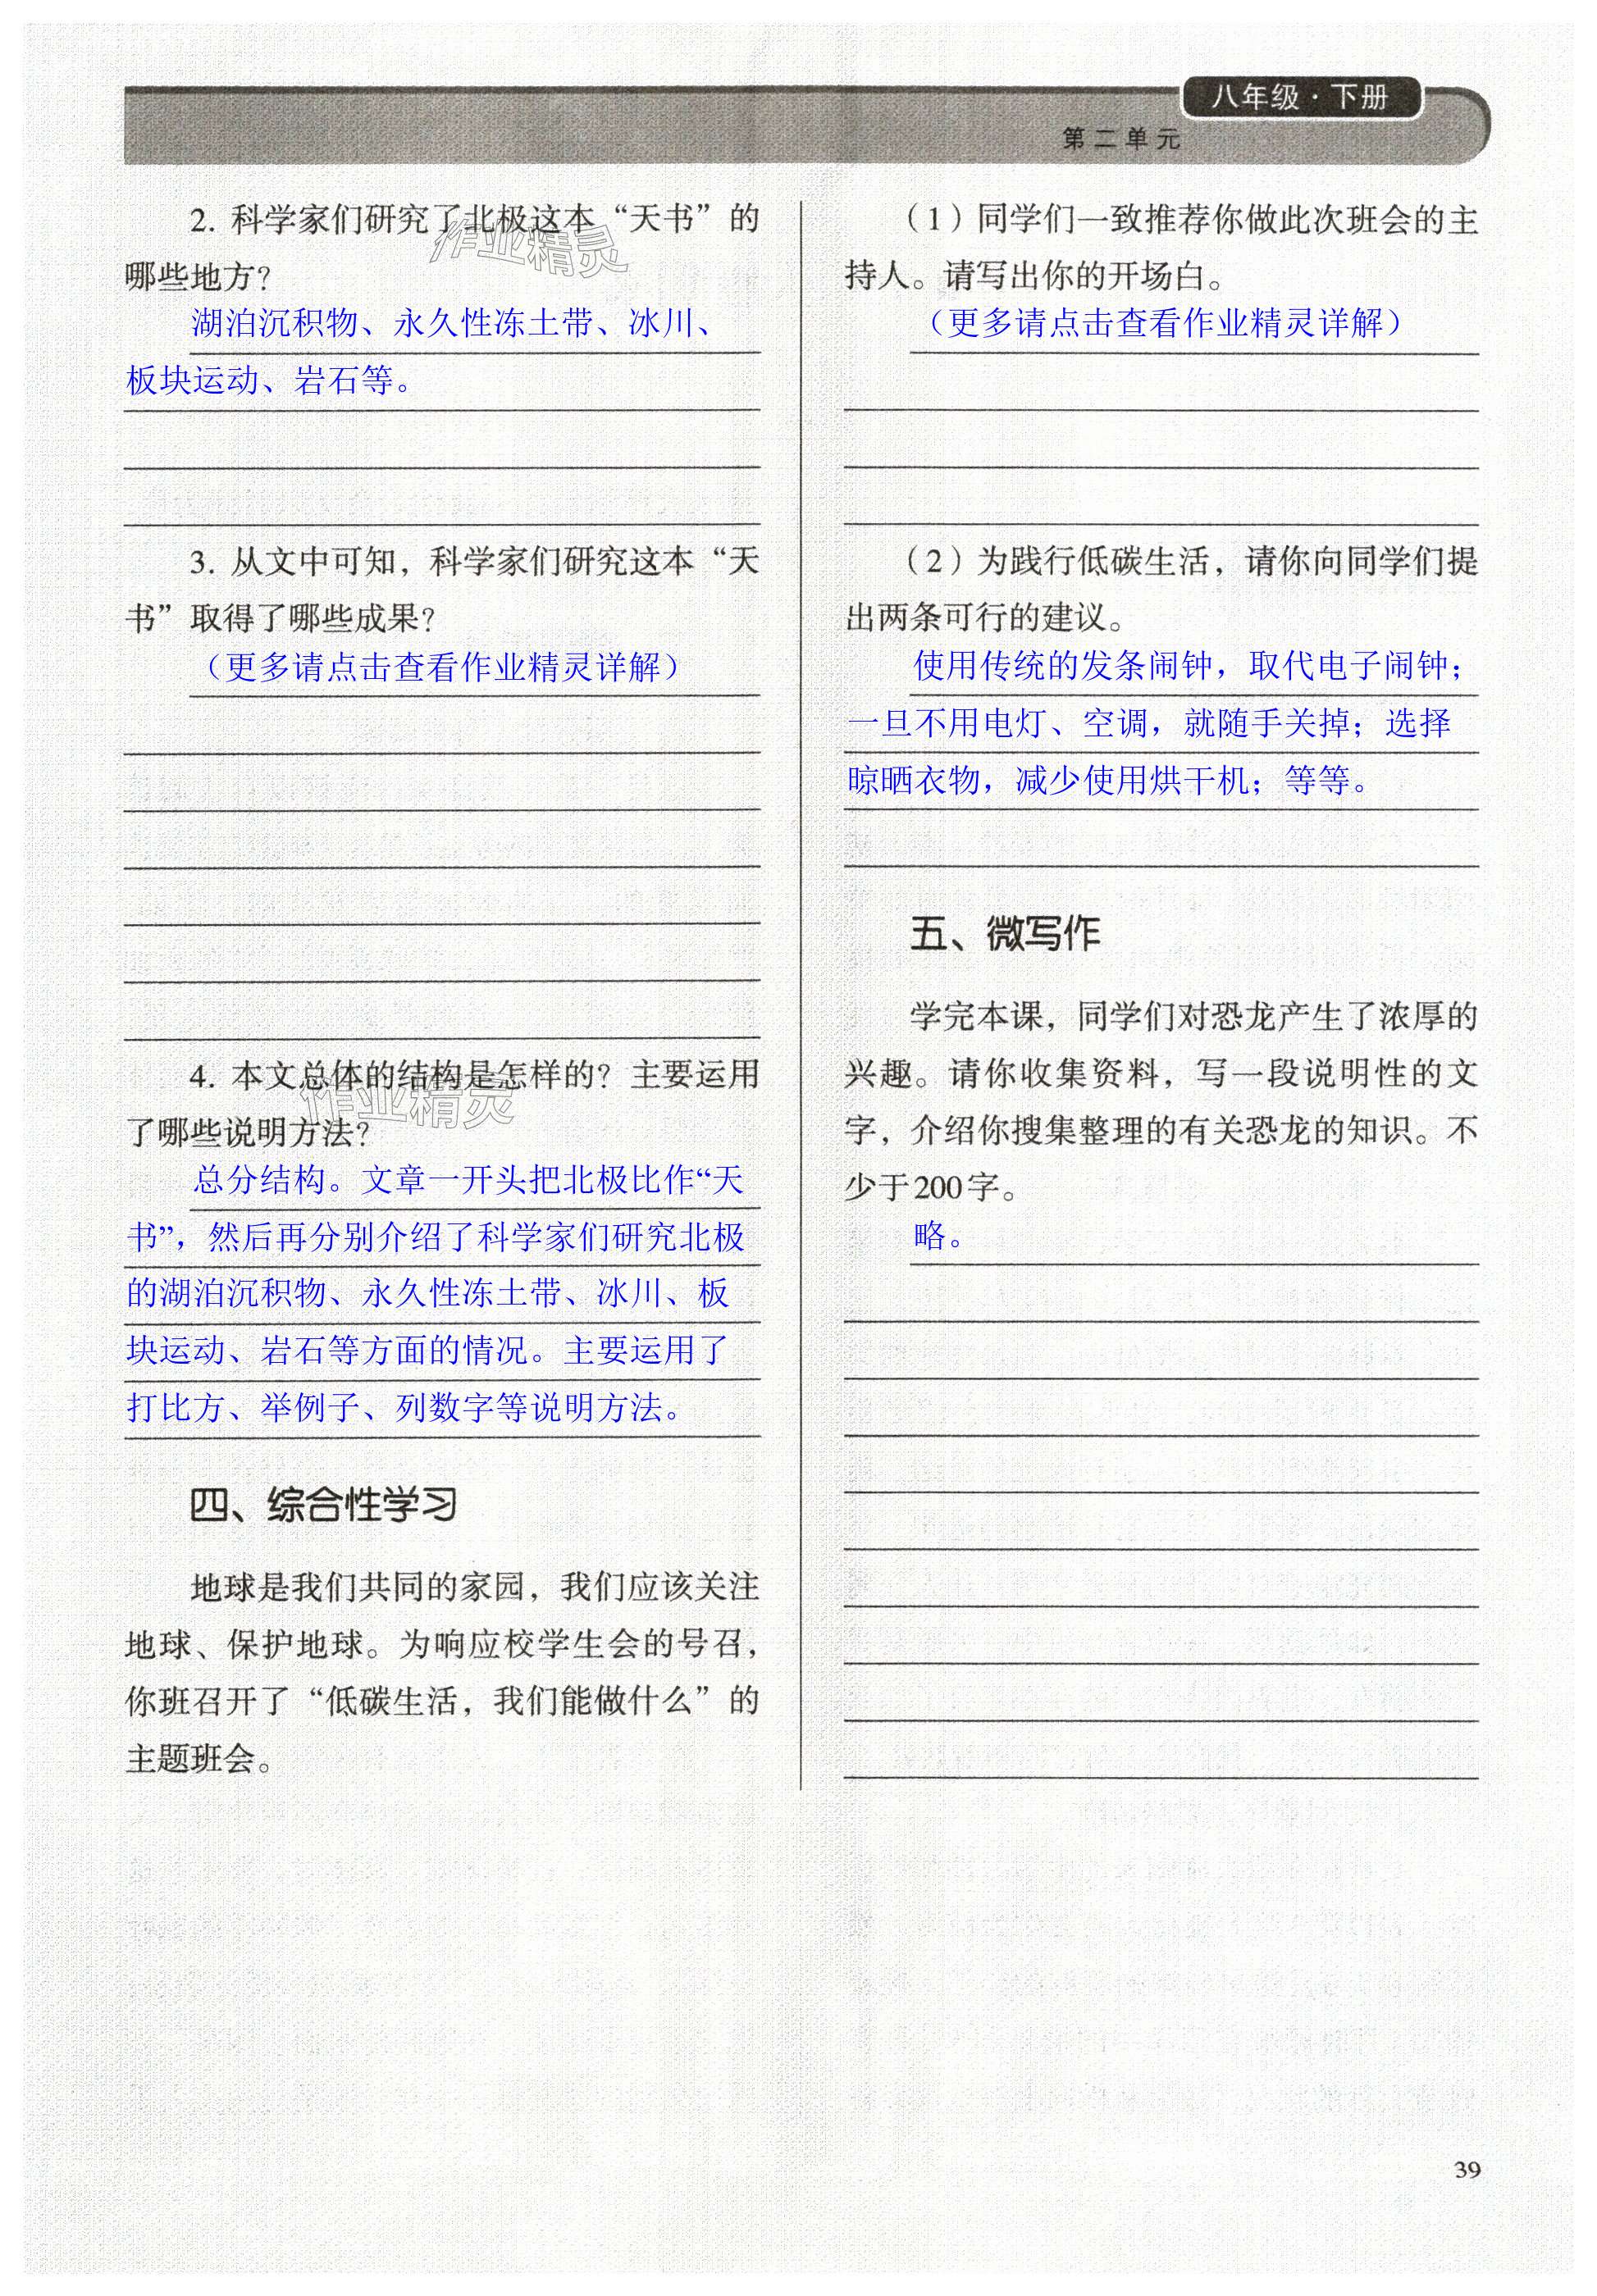 八年级·下册
第二单元
2. 科学家们研究了北极这本“天书”的
哪些地方？
湖泊沉积物、永久性冻土带、冰川、
板块运动、岩石等。
3. 从文中可知，科学家们研究这本“天
书”取得了哪些成果？
（更多请点击查看作业精灵详解）
4. 本文总体的结构是怎样的？主要运用
了哪些说明方法？
总分结构。文章一开头把北极比作“天
书”，然后再分别介绍了科学家们研究北极
的湖泊沉积物、永久性冻土带、冰川、板
块运动、岩石等方面的情况。主要运用了
打比方、举例子、列数字等说明方法。
四、综合性学习
地球是我们共同的家园，我们应该关注
地球、保护地球。为响应校学生会的号召，
你班召开了“低碳生活，我们能做什么”的
主题班会。
（1）同学们一致推荐你做此次班会的主
持人。请写出你的开场白。
（更多请点击查看作业精灵详解）
（2）为践行低碳生活，请你向同学们提
出两条可行的建议。
使用传统的发条闹钟，取代电子闹钟；
一旦不用电灯、空调，就随手关掉；选择
晾晒衣物，减少使用烘干机；等等。
五、微写作
学完本课，同学们对恐龙产生了浓厚的
兴趣。请你收集资料，写一段说明性的文
字，介绍你搜集整理的有关恐龙的知识。不
少于200字。
略。
39
作业精灵
作业精灵